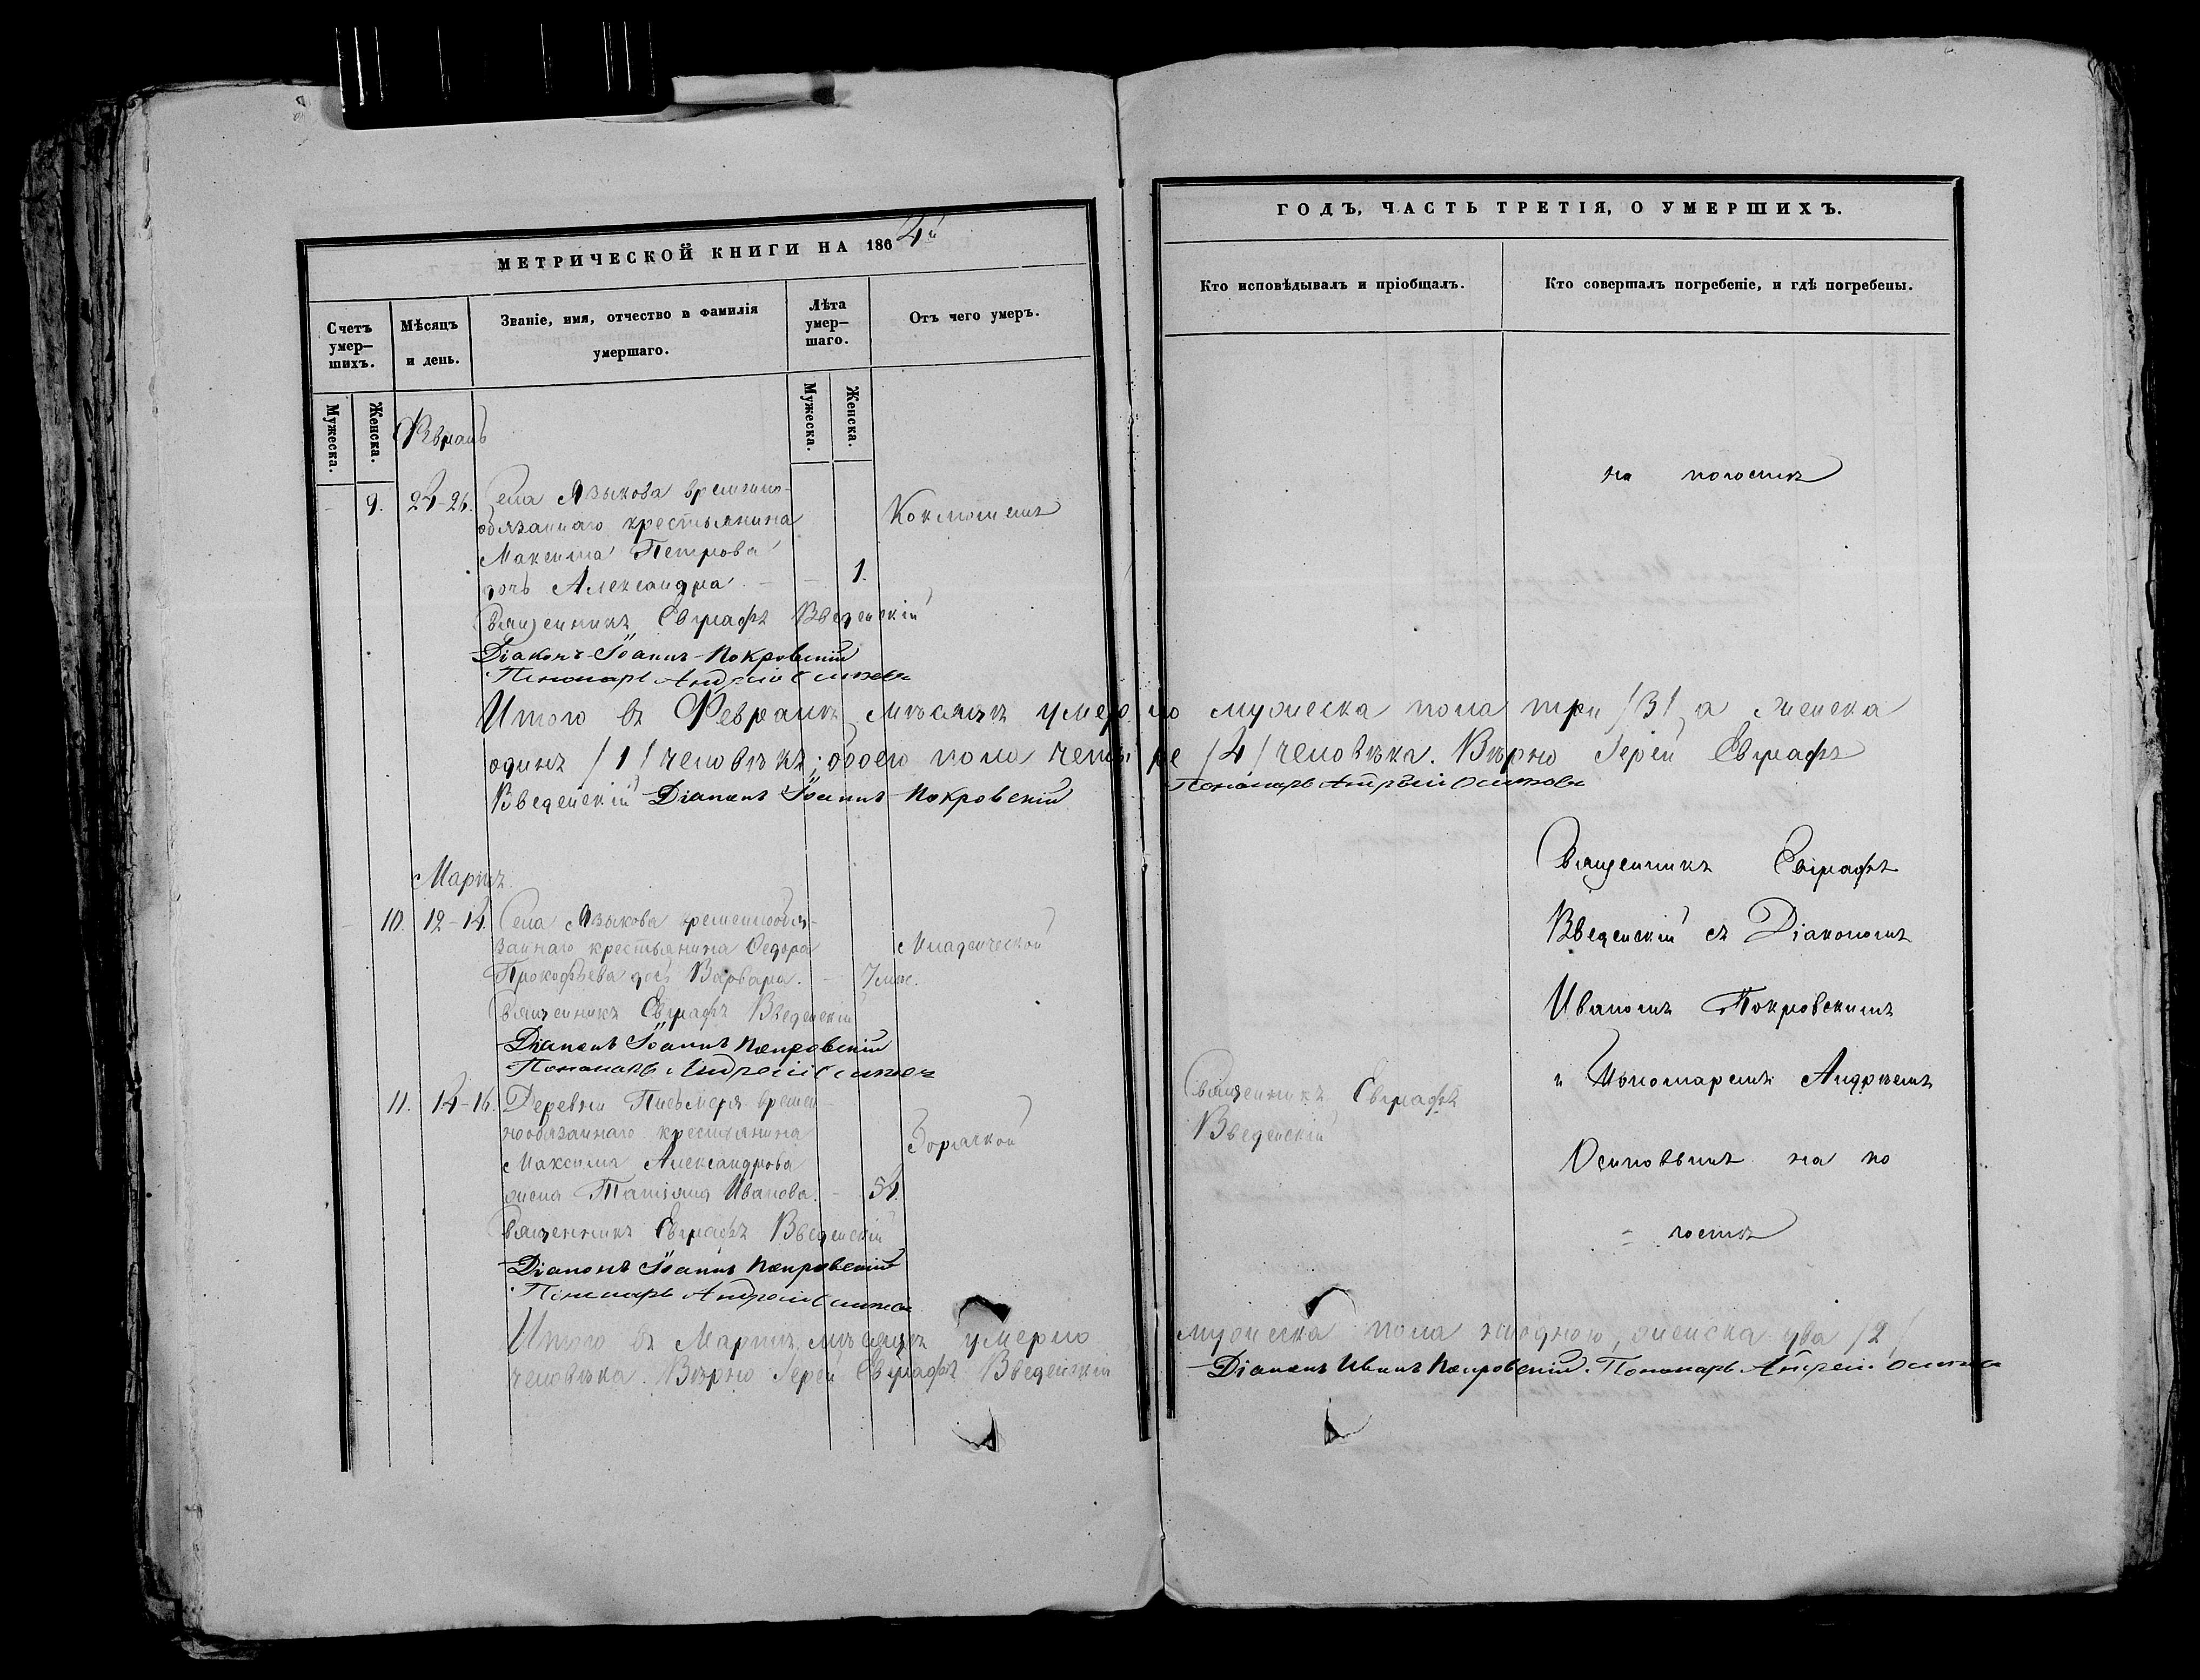 МЕТРИЧЕСКОЙ КНИГИ НА 1864й
Счетъ умер–шихъ.
Мѣсяцъ и день.
Званіе, имя, отчество и фамилія умершаго.
Лѣта умер–шаго.
Отъ чего умеръ.
Мужеска.
Женска.
Мужеска.
Женска.
Февраль
9. 24-26. Села Языкова временно-
обязаннаго крестьянина
Коклюшемъ
Максима Петрова
дочь Александра – – 1.
Священникъ Евграфъ Введенскій
Діаконъ Іоаннъ Покровскій
Пономарь Андрей Осиповъ
Итого въ Февралѣ мѣсяцѣ умер
одинъ /1/ человѣкъ; обоего пола четы
Введенскій Діаконъ Іоаннъ Покровскій
Мартъ
10. 12-14. Села Языкова временнообя-
заннаго крестьянина Федора
Младенческой
Прокофьева дочь Варвара. – 7 мѣс.
Священникъ Евграфъ Введенскій
Діаконъ Іоаннъ Покровскій
Пономарь Андрей Осиповъ
11. 14-16. Деревни Письмеря времен-
нообязаннаго крестьянина
Горячкой
Максима Александрова
жена Татіяна Иванова. – 54.
Священникъ Евграфъ Введенскій
Діаконъ Іоаннъ Покровскій
Пономарь Андрей Осиповъ
Итого въ Мартѣ мѣсяцѣ умерло
человѣка. Вѣрно Іерей Евграфъ Введенскій
ГОДЪ, ЧАСТЬ ТРЕТІЯ, О УМЕРШИХЪ.
Кто исповѣдывалъ и пріобщалъ.
Кто совершалъ погребеніе, и гдѣ погребены.
на погостѣ
ло мужеска пола три /3/ а женска
ре /4/ человѣка. Вѣрно Іерей Евграфъ
Пономарь Андрей Осиповъ
Священникъ Евграфъ
Введенскій съ Діакономъ
Иваномъ Покровскимъ
и Пономаремъ Андреемъ
Осиповымъ на по
= гостѣ
Священникъ Евграфъ
Введенскій
мужеска пола ниодного, женска два /2/
Діаконъ Иванъ Покровскій. Пономарь Андрей Осиповъ